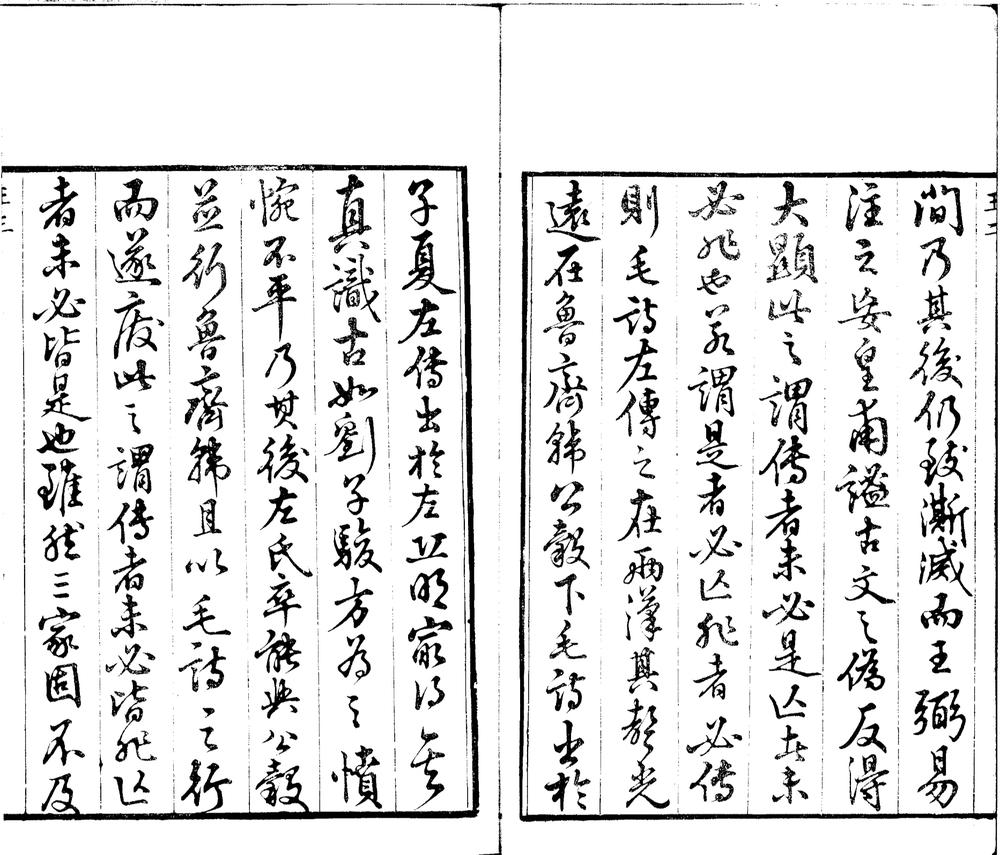 間乃其後仍致澌滅而王弼易
注之妄皇甫謐古文之偽反得
大顯此之謂傳者未必是亡者未
必非也若謂是者必亡非者必傳
則毛詩左傳之在兩漢其聲光
遠在魯齊韓公穀下毛詩出於
子夏左傳出於左丘明最得其
真識古如劉子駿方為之憤
惋不平乃其後左氏卒能與公穀
並行魯齊韓且以毛詩之行
而遂廢此之謂傳者未必皆非亡
者未必皆是也雖然三家固不及